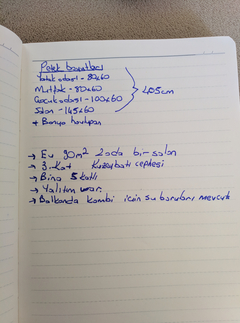 Petek boyutları
Yatak odası - 80x60
Mutfak - 80x60
Çocuk odası - 100x60
Salon - 145x60
405cm
+ Banyo havlupan
→ Ev 90m² 2 oda bir salon
→ 3. Kat Kuzeybatı cephesi
→ Bina 5 katlı
→ Yalıtım var.
→ Balkonda kombi için su boruları mevcut